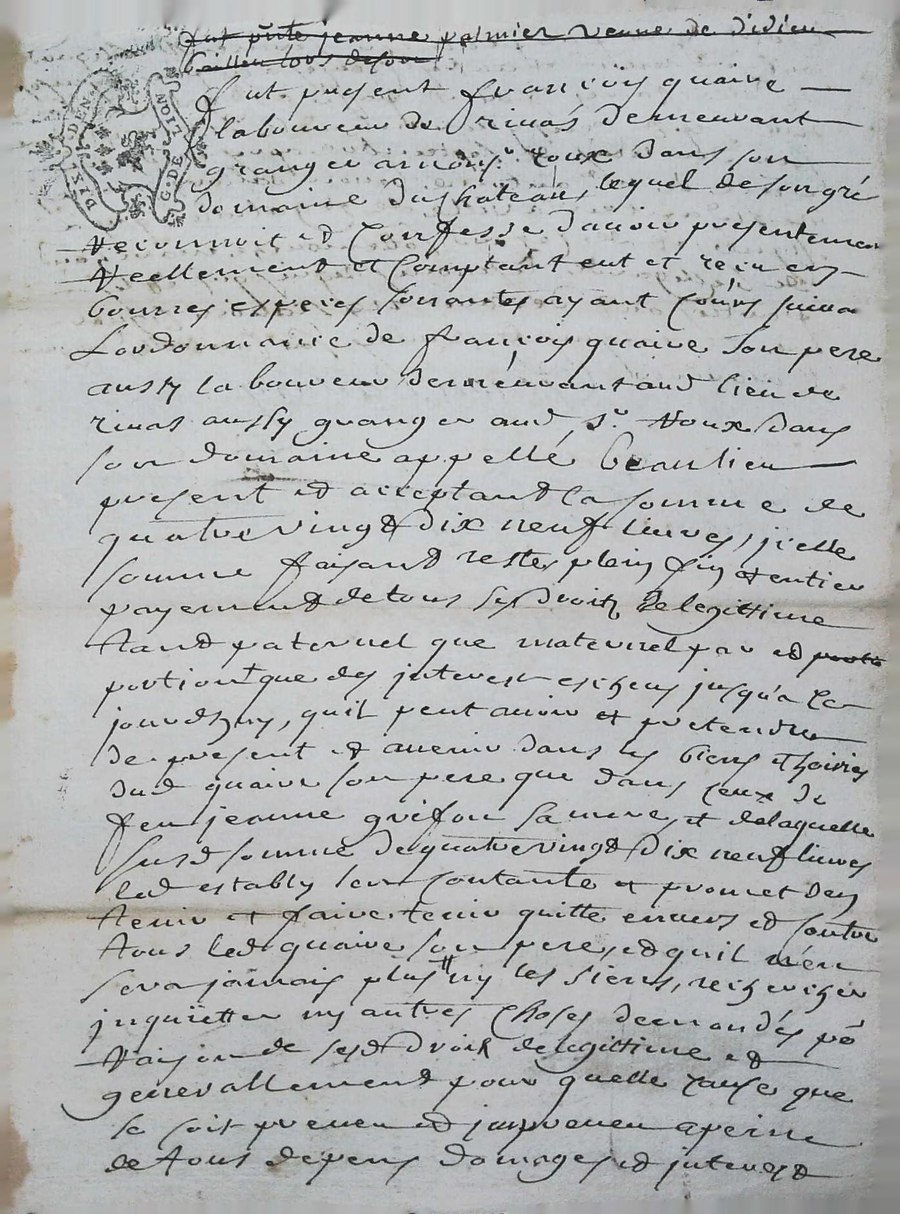 fut pnte jeanne palmier veuve de didieu
DIXI DEN
LION G·DE
fut present françois quaire
laboureur de rivas demeurant
granger du Sr roux dans son
domaine du Chateau, lequel de son gré
reconnoit et Confesse d'avoir presentemen
reellement et Comptant eut et receu en
bonnes especes sonantes ayant Cours suiva
Lordonnance de françois quaire son pere
aussy laboureur demeurant aud lieu de
rivas aussy granger aud Sr Roux dans
son domaine appellé beaulieu
present et acceptant la somme de
quatre vingt dix neuf livres, jcelle
somme faisant reste, plein fin et entier
payement de tous ses droitz de legittime
tant paternel que maternel par et portio
portion que des jnterest escheus jusqu'a ce
jourdhuy, quil peut avoir et pretendre
de present et avenir dans les biens et hoiries
dud quaire son pere que dans ceux de
feu jeanne grifon sa mere, et de laquelle
susd somme de quatre vingt dix neuf livres
led estably sen contante et promet d'en
tenir et faire tenir quitte envers et contre
tous led quaire son pere, et quil n'en
sera jamais plus ny les siens, rechercher
jnquietter ny autres Choses demandés po
raison de sesd droit de legittime et
generallement pour quelle cause que
ce soit preveu et jmpreveu a peine
de tous depens domages et jnterest